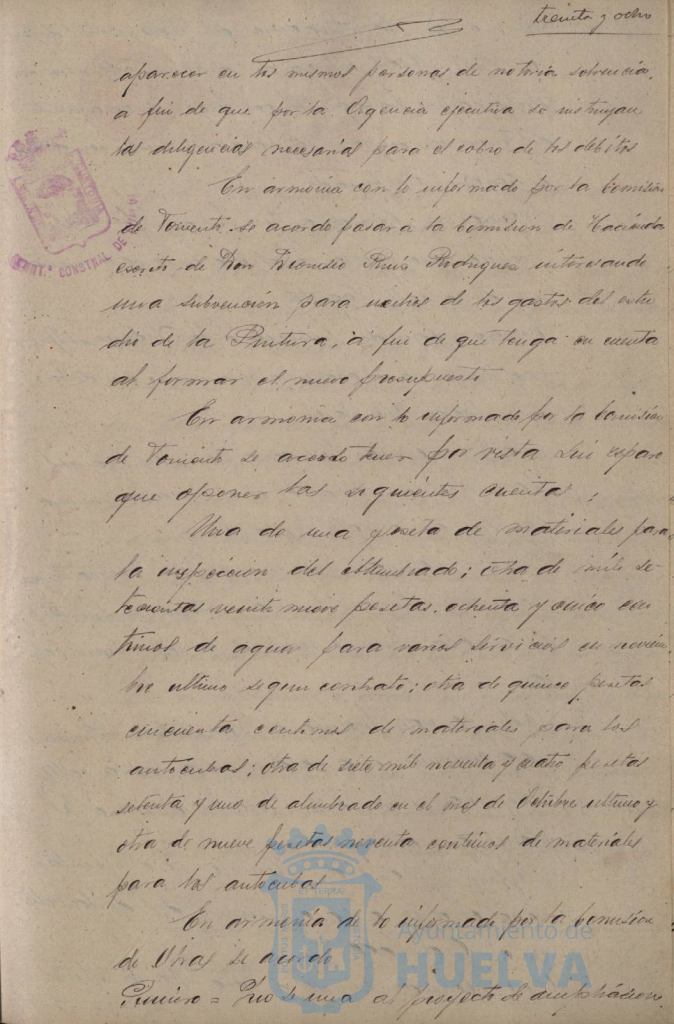 treinta y ocho
aparecer en los mismos personas de notoria solvencia,
a fin de que por la Agencia ejecutiva se instruyan
las diligencias necesarias para el cobro de los débitos
En armonia con lo informado por la Comision
de Fomento se acordo pasar á la Comision de Hacienda
escrito de Don Dionisio Ruiz Rodriguez interesando
una subvención para de los gastos del estu
dio de la Pintura, á fin de que tenga en cuenta
al formar el nuevo presupuesto
En armonia con lo informado por la Comision
de Fomento se acordo tener por vista sin reparo
que oponer las siguientes cuentas;
Una de una peseta de materiales para
la inspeccion del alumbrado; otra de mile se-
tecientas veinte nueve pesetas ochenta y cinco cen
timos de agua para varios servicios en noviem
bre ultimo segun contrato; otra de quince pesetas
cincuenta centimos de materiales para los
autocubas; otra de siete mil noventa y cuatro pesetas
setenta y uno de alumbrado en el mes de Octubre ultimo y
otra de nueve pesetas noventa centimos de materiales
para los autocubas
En armonía de lo informado por la Comision
de Obras se acordo
Primero = de una al proyecto de ampliacion
CONSTNAL. DE
Ayuntamiento de
HUELVA